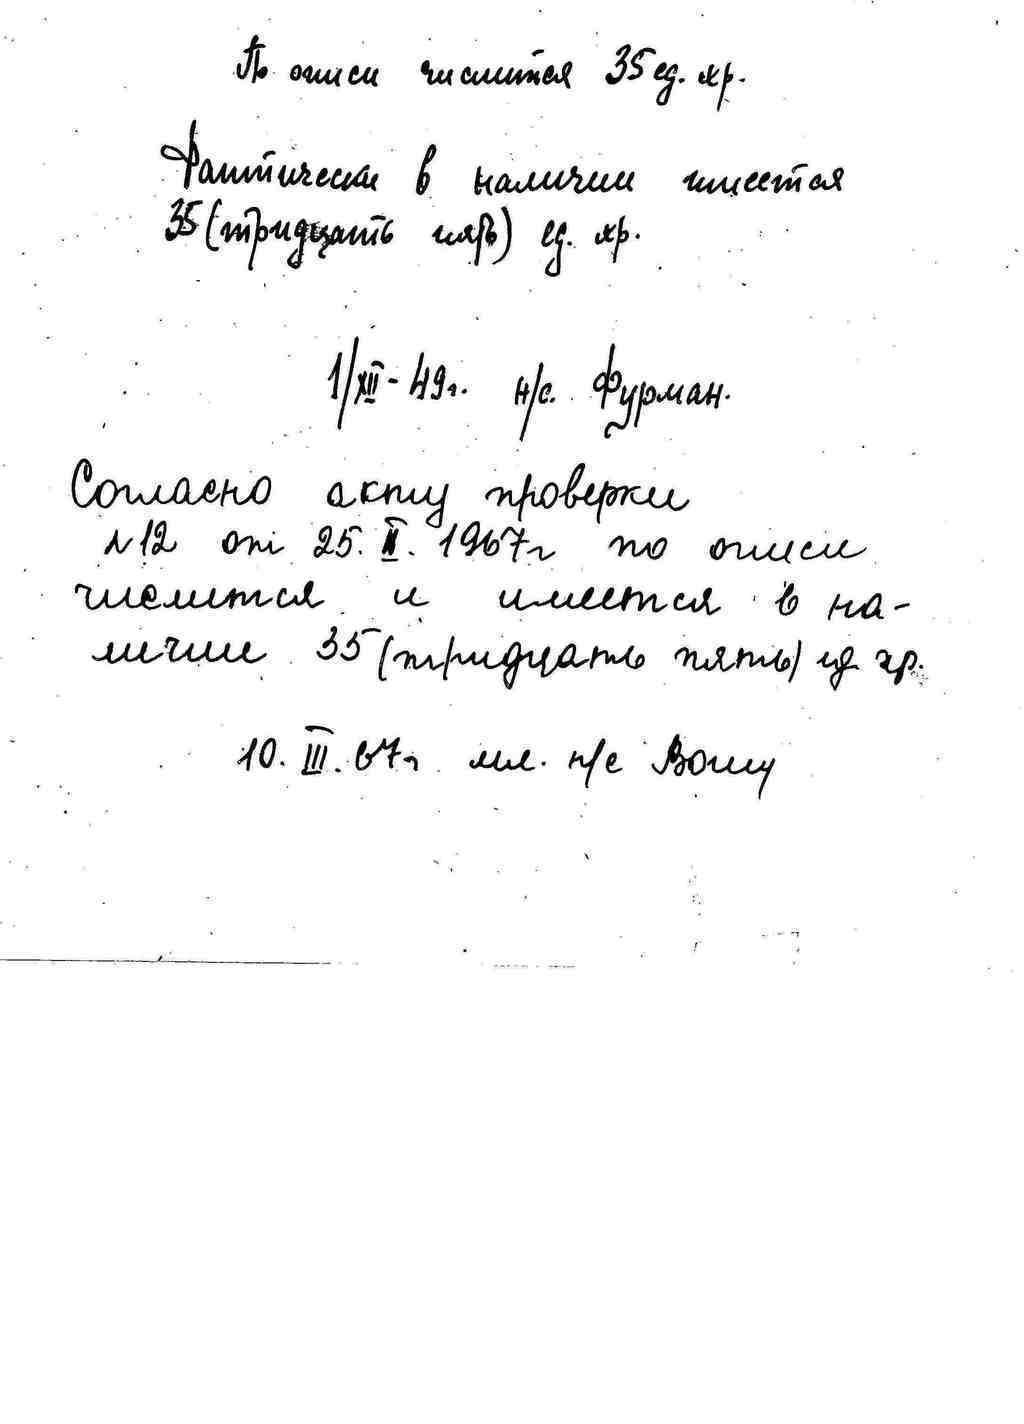 По описи числится 35 ед. хр.
Фактически в наличии имеется
35 (тридцать пять) ед. хр.
1/XII - 49 г. н/с. Фурман.
Согласно акту проверки
№12 от 25. II. 1967 г по описи
числится и имеется в на-
личии 35 (тридцать пять) ед хр.
10. III. 67 г мл. н/с